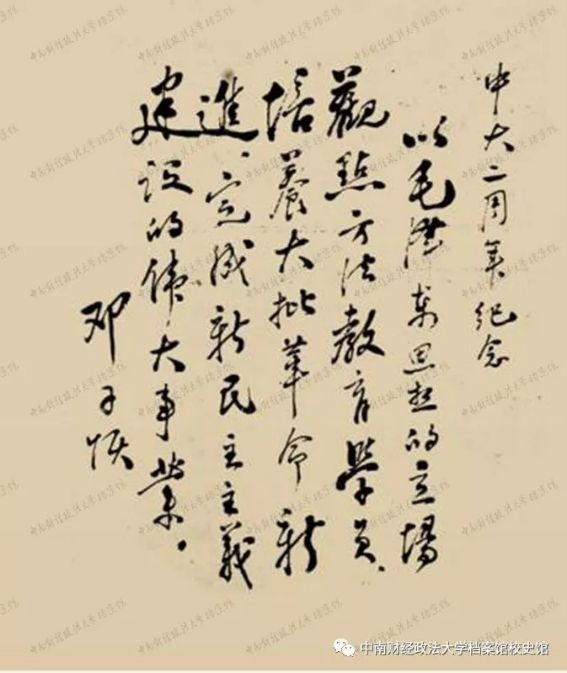 中大二周年纪念
以毛泽东思想的立場
觀點方法教育學員、
培養大批革命新
進、完成新民主主義
建设的伟大事業。
邓子恢
中南财经政法大学档案馆校史馆